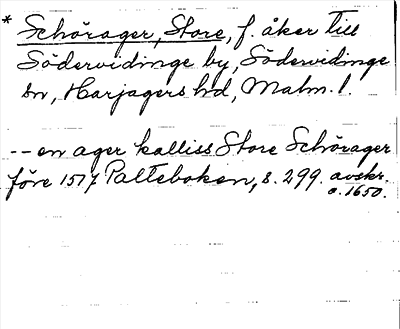 * Schörager, Store, f. åker till
Södervidinge by, Södervidinge
sn, Harjagers hd, Malm. l.
-- en ager kalliss Store Schörager
före 1517 Palteboken, s. 299. avskr.
o. 1650.